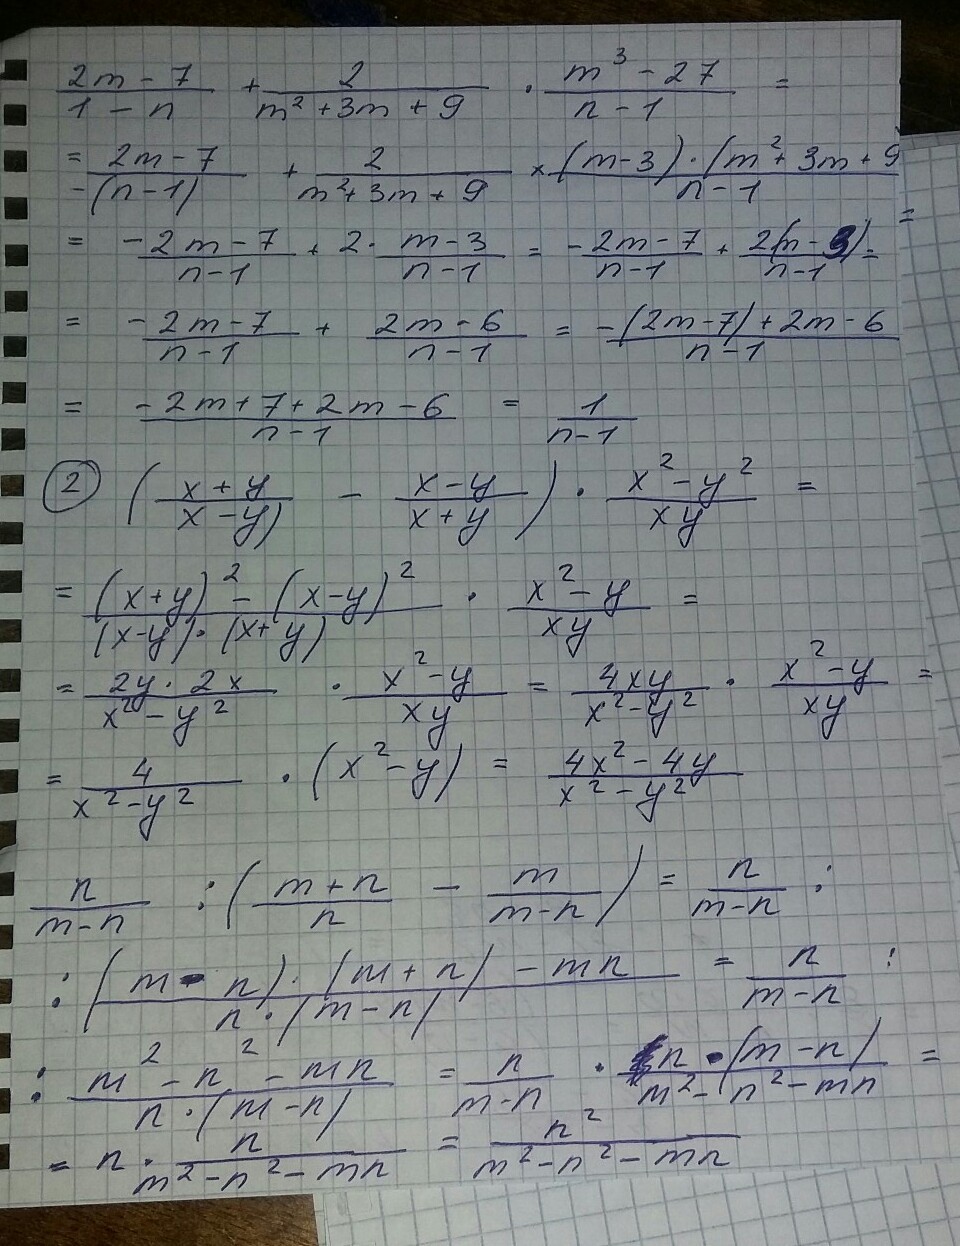 (2m - 7)/(1 - n) + 2/(m² + 3m + 9) · (m³ - 27)/(n - 1) =
= (2m - 7)/(-(n - 1)) + 2/(m² + 3m + 9) × ((m - 3) · (m² + 3m + 9)/(n - 1) =
= - (2m - 7)/(n - 1) + 2 · (m - 3)/(n - 1) = - (2m - 7)/(n - 1) + 2(m - 3)/(n - 1) =
= - (2m - 7)/(n - 1) + (2m - 6)/(n - 1) = (-(2m - 7) + 2m - 6)/(n - 1)
= (-2m + 7 + 2m - 6)/(n - 1) = 1/(n - 1)
② ((x + y)/(x - y) - (x - y)/(x + y)) · (x² - y²)/(xy) =
= ((x + y)² - (x - y)²)/((x - y) · (x + y)) · (x² - y)/(xy) =
= (2y · 2x)/(x² - y²) · (x² - y)/(xy) = (4xy)/(x² - y²) · (x² - y)/(xy) =
= 4/(x² - y²) · (x² - y) = (4x² - 4y)/(x² - y²)
n/(m - n) : ((m + n)/n - m/(m - n)) = n/(m - n) :
: ((m - n) · (m + n) - mn)/(n · (m - n)) = n/(m - n) :
: (m² - n² - mn)/(n · (m - n)) = n/(m - n) · (n · (m - n))/(m² - n² - mn) =
= n · n/(m² - n² - mn) = n²/(m² - n² - mn)